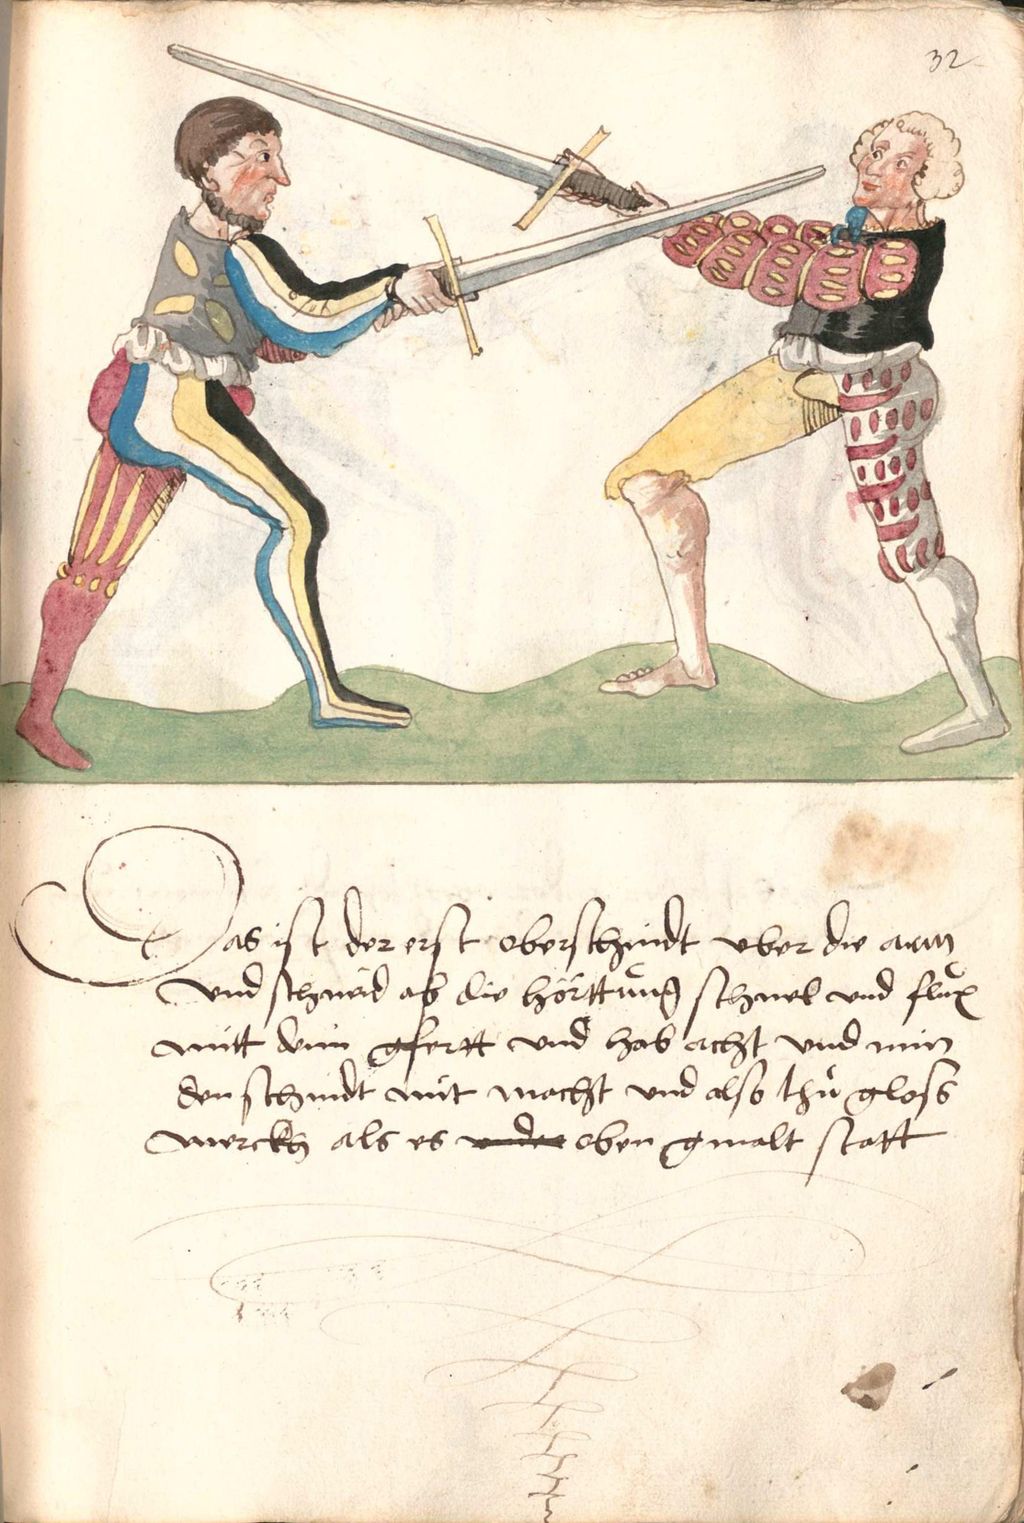 32
Das ist der erst oberschnidt vber die arm
vnd schneid ab die hörttung schnel vnd flux
mitt dein gfertt vnd hab acht vnd nim
den schnidt mit macht vnd also thů gloss
merckh als es oben gmalt statt